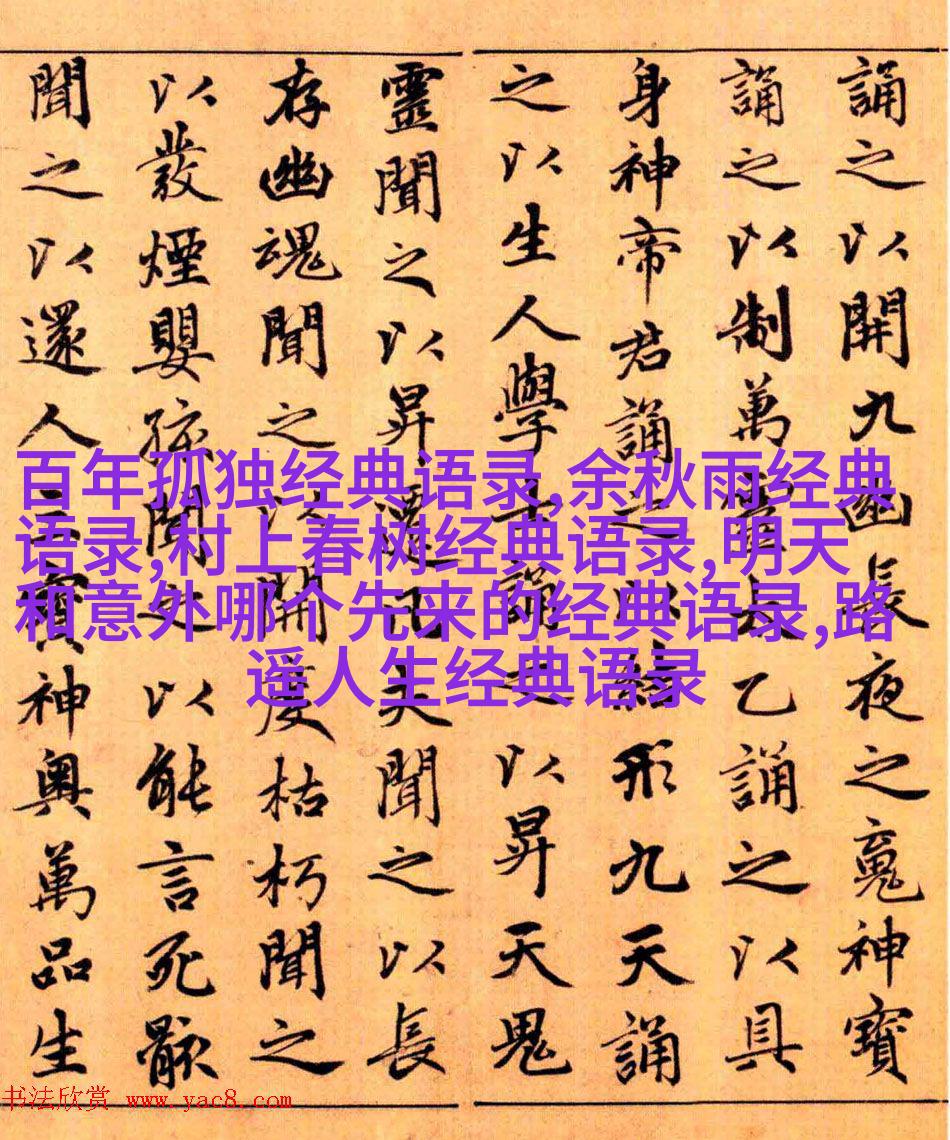 誦之以開九幽長夜之魂神寶
誦之以制萬靈太乙誦之以具
身神帝君誦之以結形九天誦
之以生人學士誦之以昇天鬼
靈聞之以昇遷凡夫聞之以長
存幽魂聞之以開度枯朽聞之
以發煙嬰孩聞之以能言死骸
聞之以還人三寶神奧萬品生
百年孤独经典语录,余秋雨经典
语录,村上春树经典语录,明天
和意外哪个先来的经典语录,路
遥人生经典语录
书法欣赏 www.yac8.com